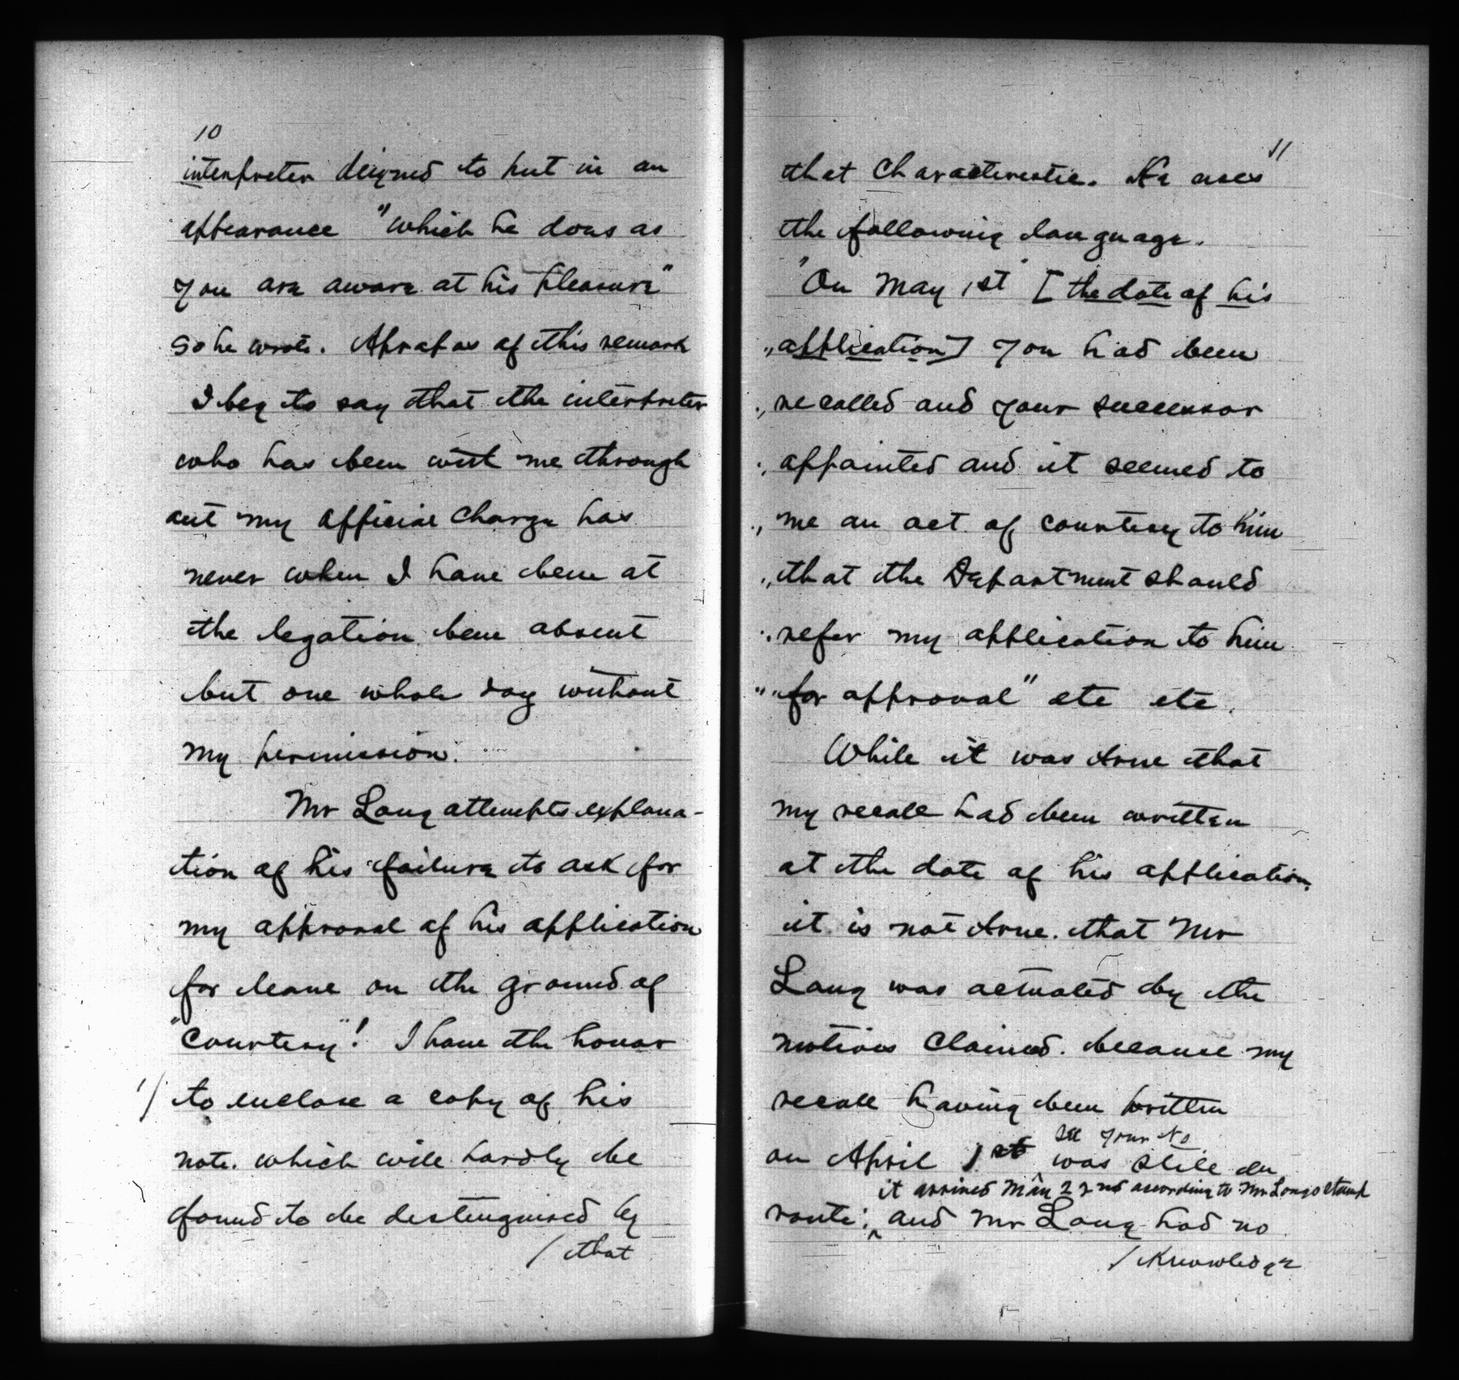 10
interpreter deigned to put in an
appearance "which he does as
you are aware at his pleasure"
so he wrote. Apropos of this remark
I beg to say that the interpreter
who has been with me through
out my official charge has
never when I have been at
the legation been absent
but one whole day without
my permission.
Mr Long attempts explana-
tion of his failure to ask for
my approval of his application
for leave on the ground of
"courtesy"! I have the honor
1/ to enclose a copy of his
note. which will hardly be
found to be distinguised by
/ that
11
that characteristic. He uses
the following language.
"On May 1st" [the date of his
" application] you had been
" recalled and your successor
" appointed and it seemed to
" me an act of courtesy to him
" that the Department should
" refer my application to him
" "for approval" etc etc.
While it was true that
my recall had been written
at the date of his application,
it is not true. that Mr
Long was actuated by the
motives claimed. because my
recall having been written
See your No
on April 1st was still en
it arrived May 22nd according to Mr Longs stamp
route; ^ and Mr Long had no
/ knowledge